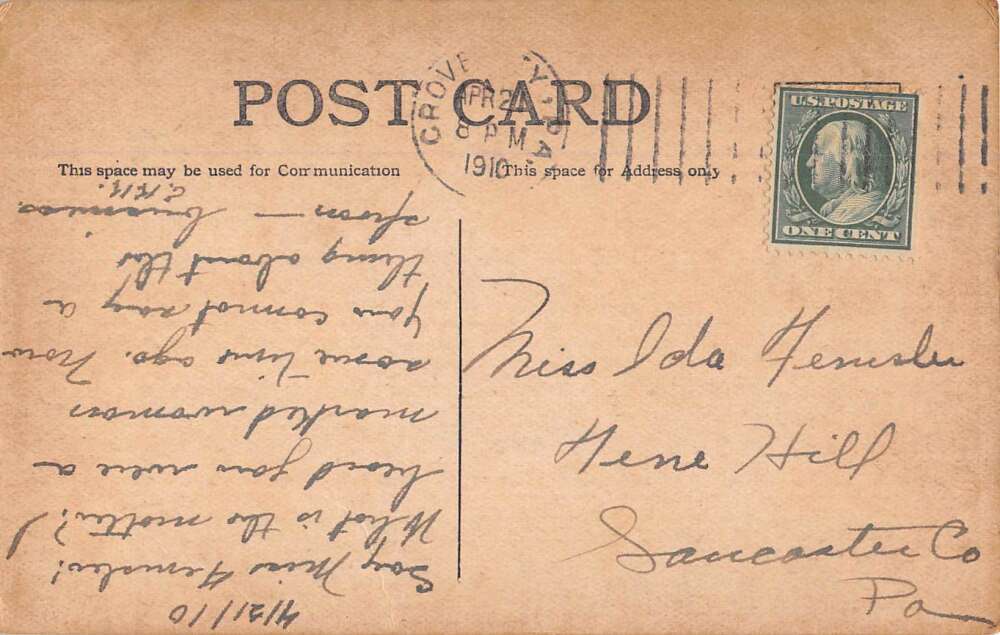 POST CARD
GROVE CITY PA
APR 21
8 PM
1910
U.S. POSTAGE
ONE CENT
This space may be used for Correspondence
This space for Address only
4/21/10
Say Miss Femsler!
What is the matter? I
heard you were a
marked woman
some time ago. Now
you cannot say a
thing about this
shoon — business.
Miss Ida Femsler
Hill
Lancaster Co
Pa